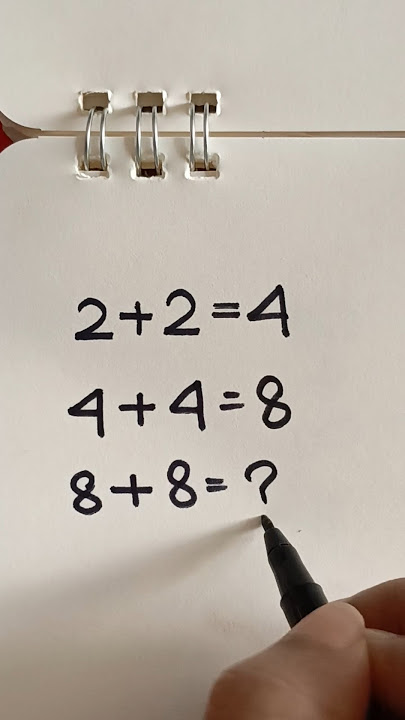 2+2=4
4+4=8
8+8=?